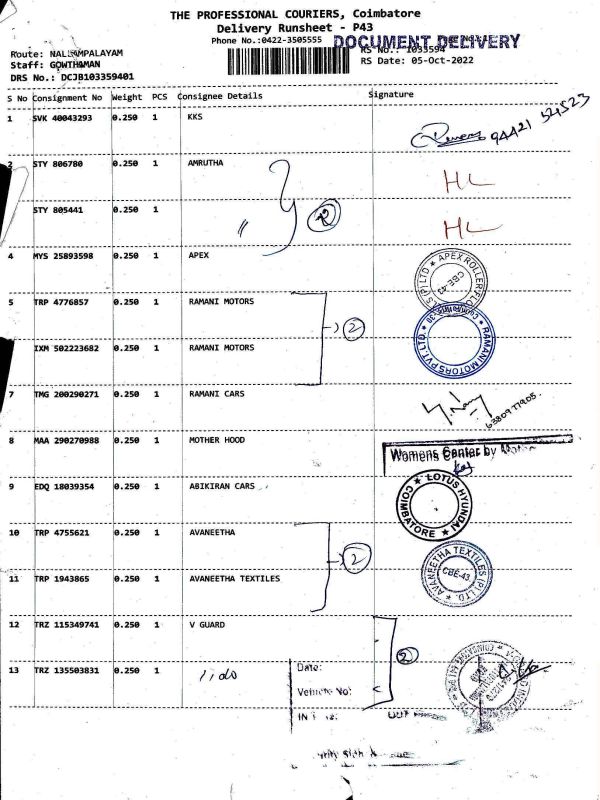 THE PROFESSIONAL COURIERS, Coimbatore
Delivery Runsheet - P43
Phone No.:0422-3505555
DOCUMENT DELIVERY
Route: NALLAMPALAYAM
RS No.: 1033594
Staff: GOWTHAMAN
RS Date: 05-Oct-2022
DRS No.: DCJB103359401
S No Consignment No Weight PCS Consignee Details Signature
1 SVK 40043293 0.250 1 KKS
94421 54523
2 STY 806780 0.250 1 AMRUTHA HL
STY 805441 0.250 1 〃 2 HL
4 MYS 25893598 0.250 1 APEX
APEX ROLLERFLO
CBE-43
5 TRP 4776857 0.250 1 RAMANI MOTORS
2
RAMANI MOTORS PVT.LTD.
IXM 502223682 0.250 1 RAMANI MOTORS
7 TMG 200290271 0.250 1 RAMANI CARS
6380977905
8 MAA 290270988 0.250 1 MOTHER HOOD
Womens Center by
9 EDQ 18039354 0.250 1 ABIKIRAN CARS
LOTUS HYUNDAI
COIMBATORE
10 TRP 4755621 0.250 1 AVANEETHA
2
AVANEETHA TEXTILES (P) LTD.
CBE-43
11 TRP 1943865 0.250 1 AVANEETHA TEXTILES
12 TRZ 115349741 0.250 1 V GUARD
2
13 TRZ 135503831 0.250 1
Date:
Vehicle No: